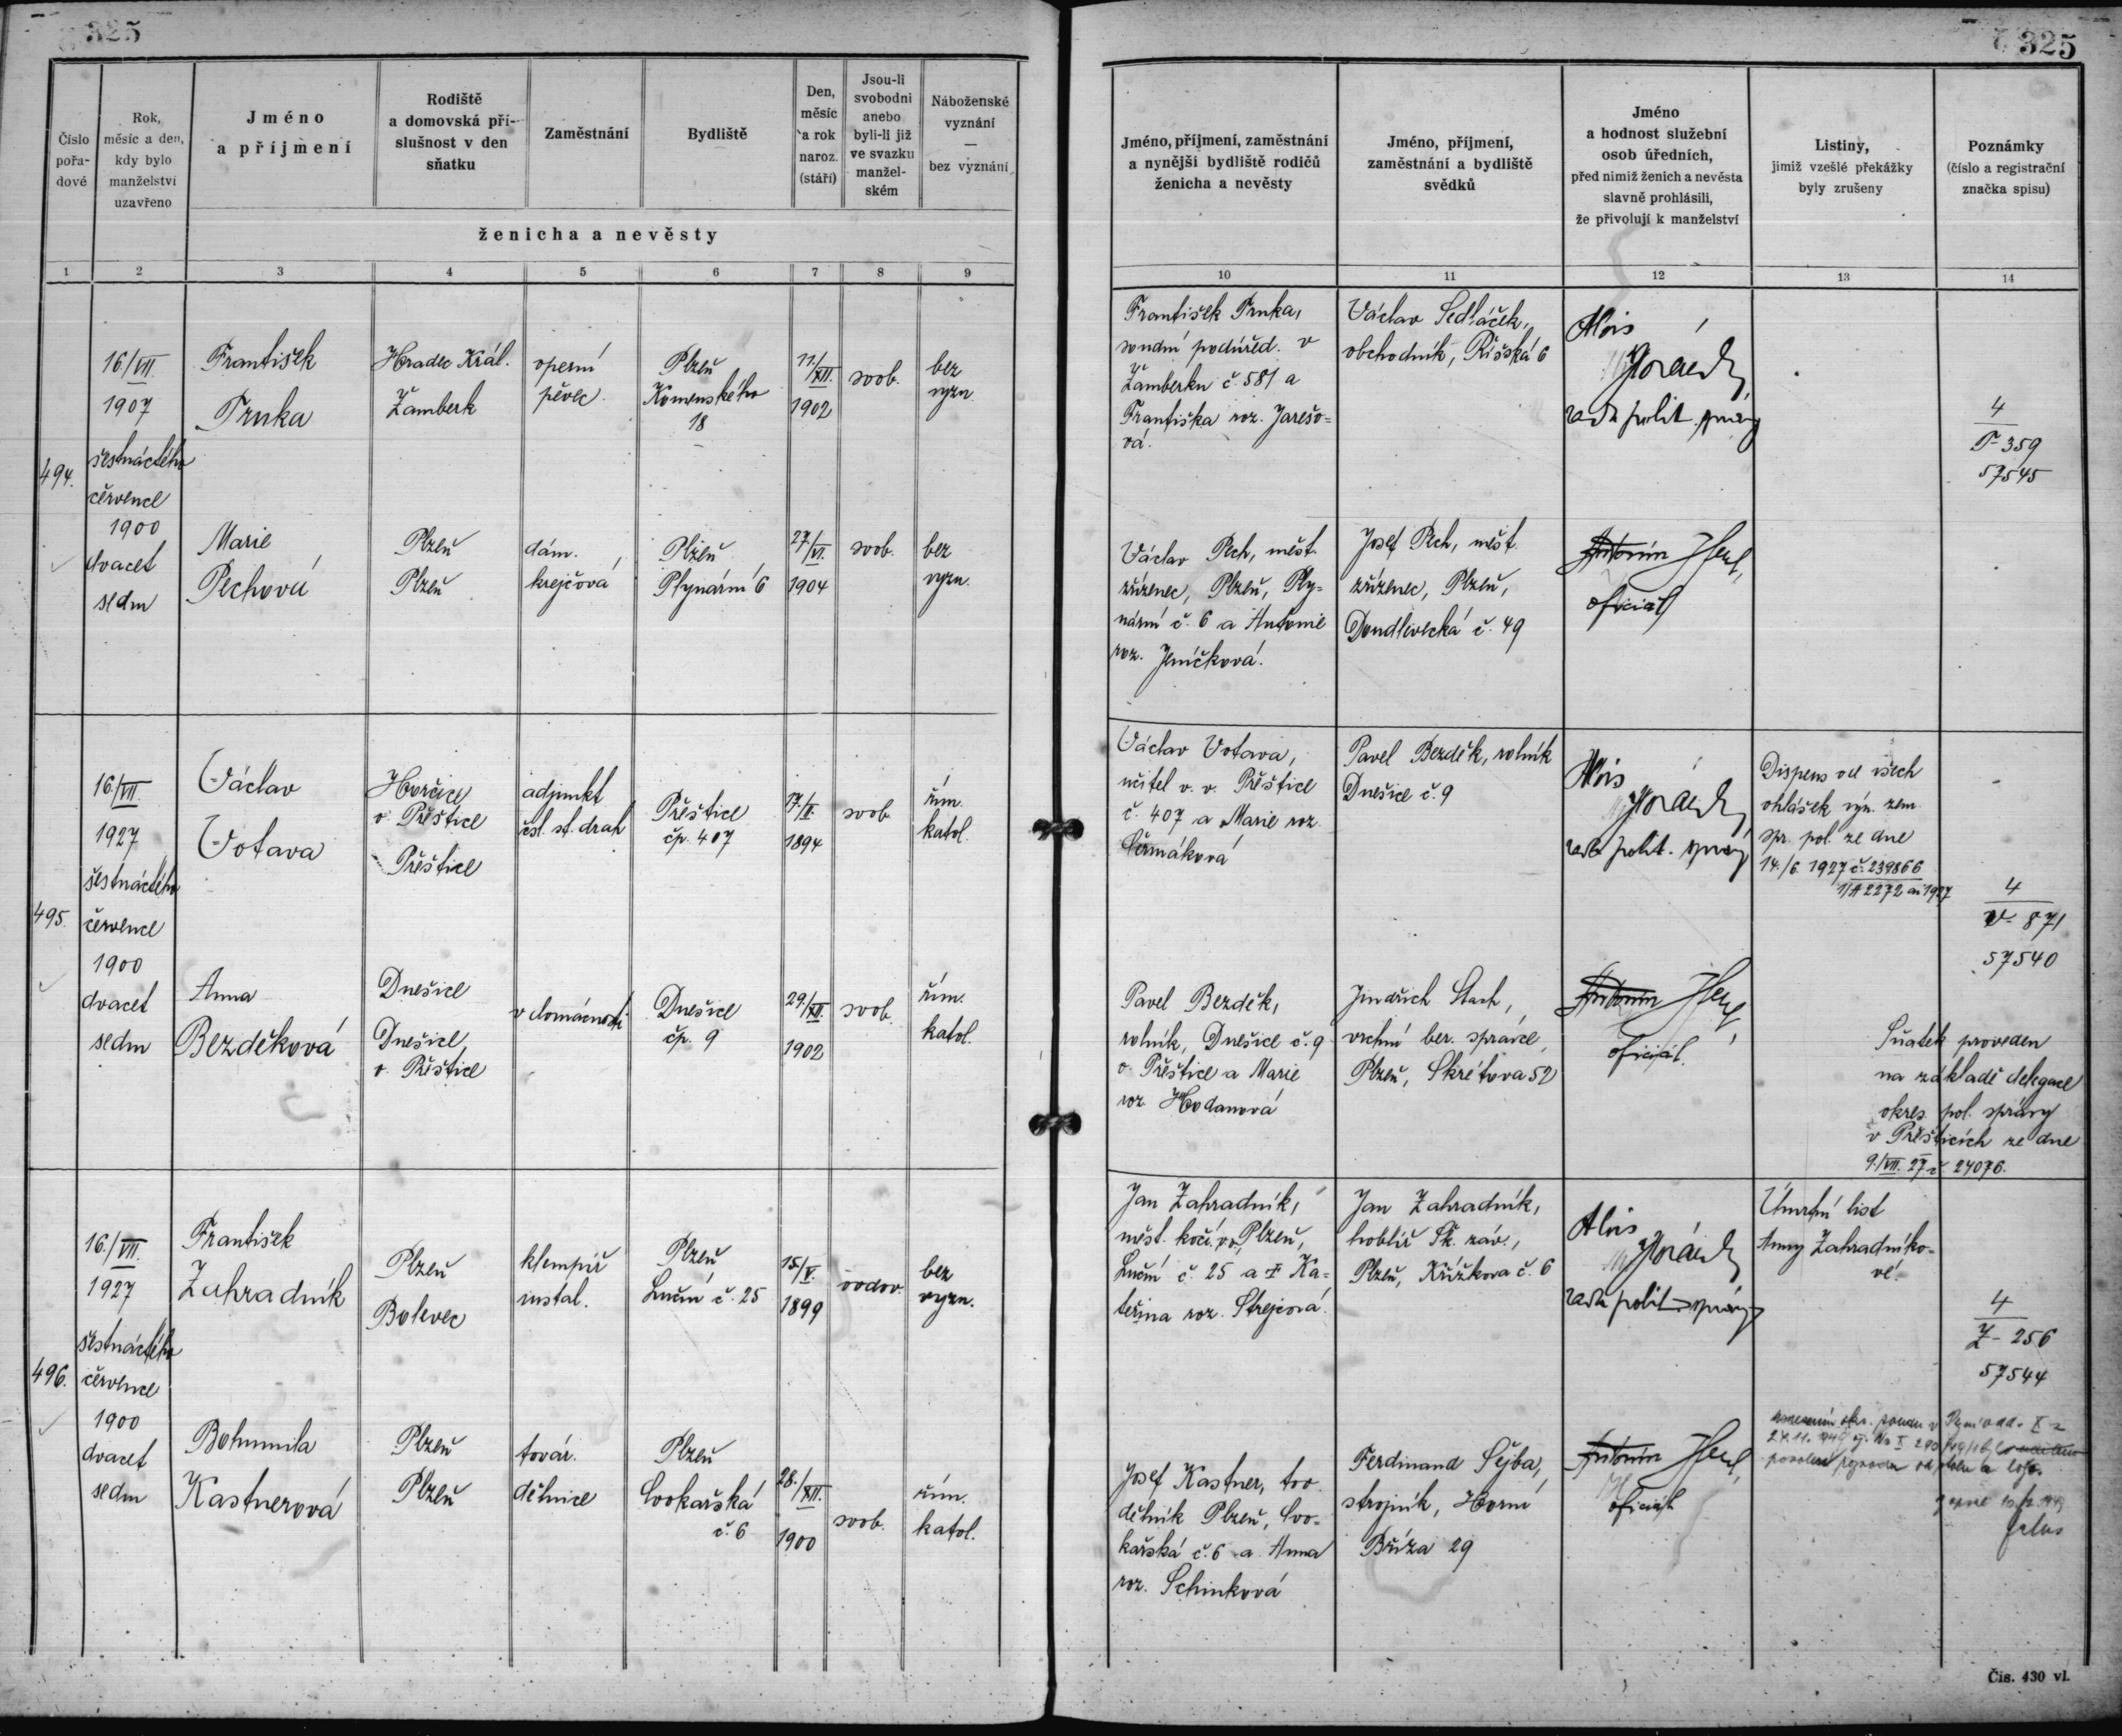 325
325
Číslo pořa-dové
Rok, měsíc a den, kdy bylo manželství uzavřeno
Jméno a příjmení
Rodiště a domovská pří-slušnost v den sňatku
Zaměstnání
Bydliště
Den, měsíc a rok naroz. (stáří)
Jsou-li svobodni anebo byli-li již ve svazku manžel-ském
Náboženské vyznání — bez vyznání
ženicha a nevěsty
Jméno, příjmení, zaměstnání a nynější bydliště rodičů ženicha a nevěsty
Jméno, příjmení, zaměstnání a bydliště svědků
Jméno a hodnost služební osob úředních, před nimiž ženich a nevěsta slavně prohlásili, že přivolují k manželství
Listiny, jimiž vzešlé překážky byly zrušeny
Poznámky (číslo a registrační značka spisu)
1 2 3 4 5 6 7 8 9
10 11 12 13 14
494.
16./VII.
1907
šestnáctého
července
1900
dvacet
sedm
František
Trnka
Hradec Král.
Žamberk
operní
pěvec
Plzeň
Komenského
18
11/XII.
1902
svob.
bez
vyzn.
František Trnka,
soudní podúřed. v
Žamberku č. 581 a
Františka roz. Jarešo-
vá.
Václav Sedláček,
obchodník, Říšská 6
Alois
rada polit. správy
4
T-359
57545
Marie
Pechová
Plzeň
Plzeň
dám.
krejčová
Plzeň
Plynární 6
27./VI.
1904
svob.
bez
vyzn.
Václav Pech, měst.
zřízenec, Plzeň, Ply-
nární č. 6 a Antonie
roz. Jeníčková.
Josef Pech, měst.
zřízenec, Plzeň,
Doudlevecká č. 49
Antonín
oficiál
495.
16./VII.
1927
šestnáctého
července
1900
dvacet
sedm
Václav
Votava
Horčice
o. Přeštice
Přeštice
adjunkt
čsl. st. drah
Přeštice
čp. 407
17./II.
1894
svob.
řím.
katol.
Václav Votava,
učitel v. v. Přeštice
č. 407 a Marie roz.
Čermáková
Pavel Bezděk, rolník
Dnešice č. 9
Alois
rada polit. správy
Dispens od všech
ohlášek výn. zem.
spr. pol. ze dne
14./6. 1927 č. 239866
1/A 2272 ai 1927
4
V- 871
57540
Anna
Bezděková
Dnešice
Dnešice,
o. Přeštice
v domácnosti
Dnešice
čp. 9
29./XII.
1902
svob.
řím.
katol.
Pavel Bezděk,
rolník, Dnešice č. 9
o. Přeštice a Marie
roz. Hodanová
Jindřich Stach,
vrchní ber. správce,
Plzeň, Skrétova 52
Antonín
oficiál.
Sňatek proveden
na základě delegace
okres. pol. správy
v Přešticích ze dne
9./VII. 27 č. 24076.
496.
16./VII.
1927
šestnáctého
července
1900
dvacet
sedm
František
Zahradník
Plzeň
Bolevec
klempíř
instal.
Plzeň
Luční č. 25
15/V.
1899
vdov.
bez
vyzn.
Jan Zahradník,
měst. kočí, v Plzeň,
Luční č. 25 a † Ka-
teřina roz. Strejcová.
Jan Zahradník,
hoblíř Šk. záv.,
Plzeň, Křížkova č. 6
Alois
rada polit. správy
Úmrtní list
Anny Zahradníko-
vé.
4
Z- 256
57544
Bohumila
Kastnerová
Plzeň
Plzeň
továr.
dělnice
Plzeň
Cvokařská
č. 6
28./XII.
1900
svob.
řím.
katol.
Josef Kastner, tov.
dělník Plzeň, Cvo-
kařská č. 6 a Anna
roz. Schinková
Ferdinand Šejba,
strojník, Horní
Bříza 29
Antonín
oficiál
Čís. 430 vl.